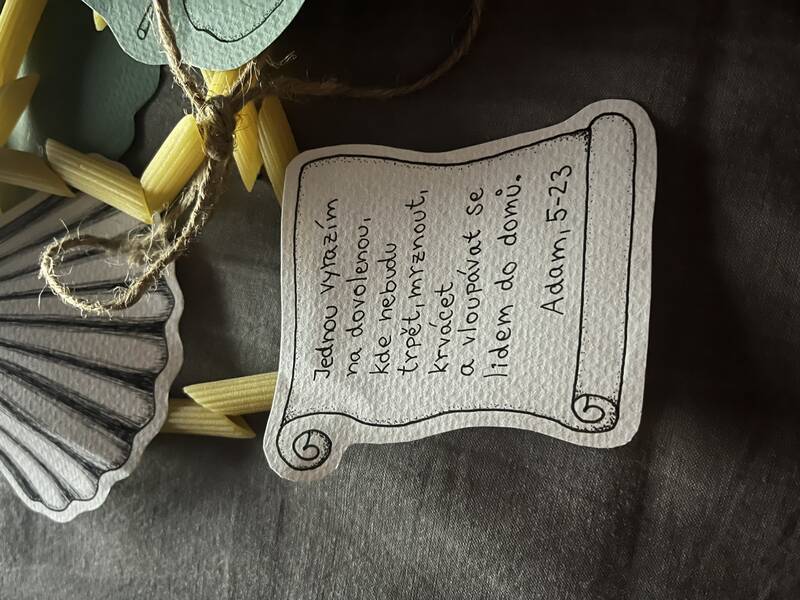 Jednou vyrazím
na dovolenou,
kde nebudu
trpět, mrznout,
krvácet
a vloupávat se
lidem do domů.
Adam, 5-23